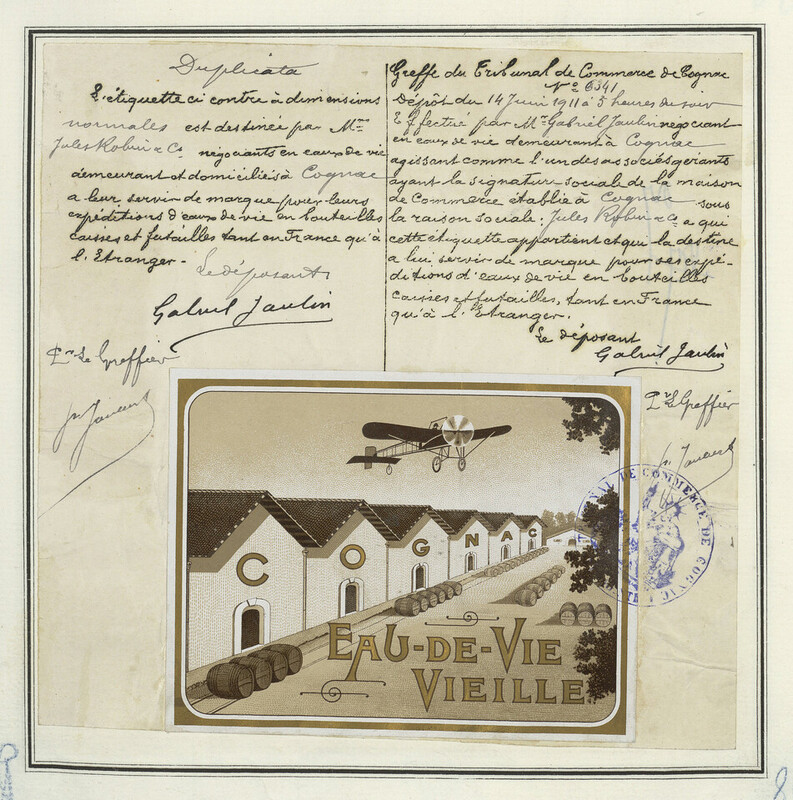 Duplicata
L'étiquette ci contre à dimensions
normales est destinée par MM
Jules Robin & Co négociants en eaux de vie
demeurant et domiciliés à Cognac
a leur servir de marque pour leurs
expéditions d'eaux de vie en bouteilles
caisses et futailles tant en France qu'à
l'Etranger.
Le déposant
Gabriel Jaulin
Pr Le Greffier
Greffe du Tribunal de Commerce de Cognac
No 6341
Dépôt du 14 Juin 1911 à 5 heures du soir
Effectué par Mr Gabriel Jaulin négociant
en eaux de vie demeurant à Cognac
agissant comme l'un des associés gérants
ayant la signature sociale de la maison
de Commerce établie à Cognac sous
la raison sociale: Jules Robin & Co a qui
cette étiquette appartient et qui la destine
a lui servir de marque pour ses expé-
ditions d'eaux de vie en bouteilles
caisses et futailles, tant en France
qu'à l'Etranger.
Le déposant
Gabriel Jaulin
Pr Le Greffier
COGNAC
EAU-DE-VIE
VIEILLE
TRIBUNAL DE COMMERCE DE COGNAC